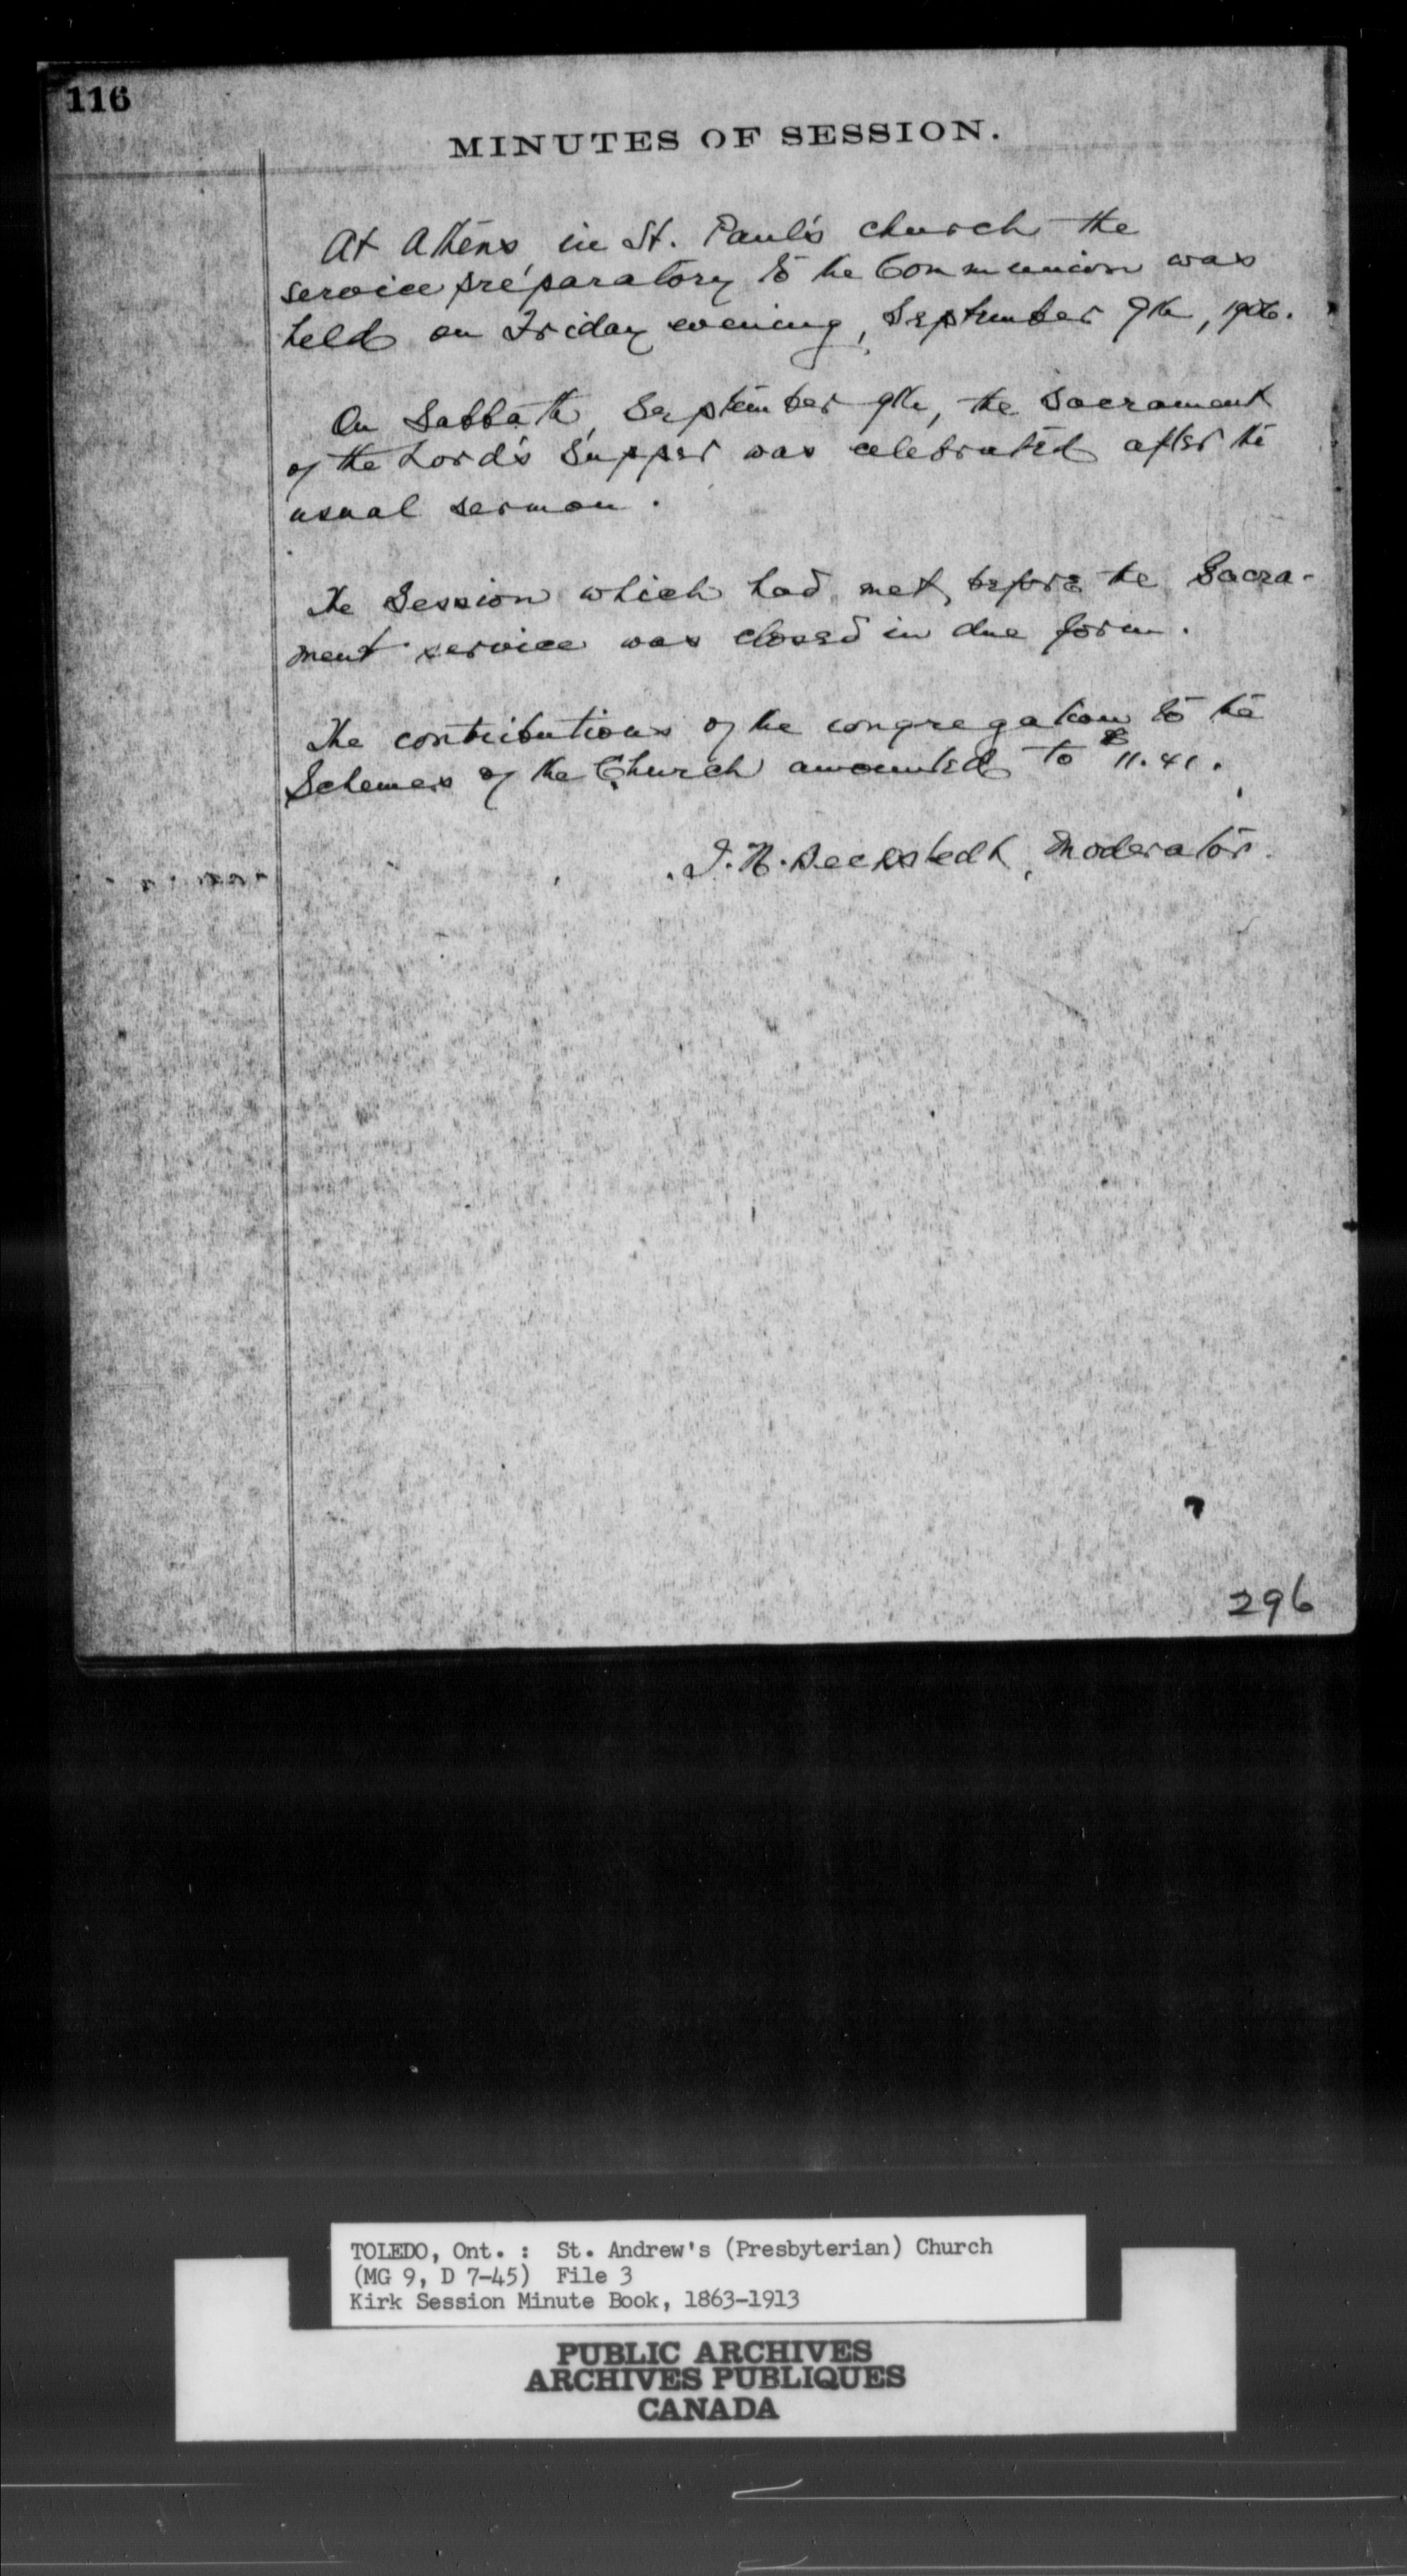 116
MINUTES OF SESSION.
At Athens, in St. Paul's church the
service preparatory to the Communion was
held on Friday evening, September 7th, 1906.
On Sabbath, September 9th, the Sacrament
of the Lord's Supper was celebrated after the
usual sermon.
The Session which had met before the Sacra-
ment service was closed in due form.
The contributions of the congregation to the
Schemes of the Church amounted to $11.41.
J. H. Beckstedt, Moderator.
296
TOLEDO, Ont. : St. Andrew's (Presbyterian) Church
(MG 9, D 7-45) File 3
Kirk Session Minute Book, 1863-1913
PUBLIC ARCHIVES
ARCHIVES PUBLIQUES
CANADA